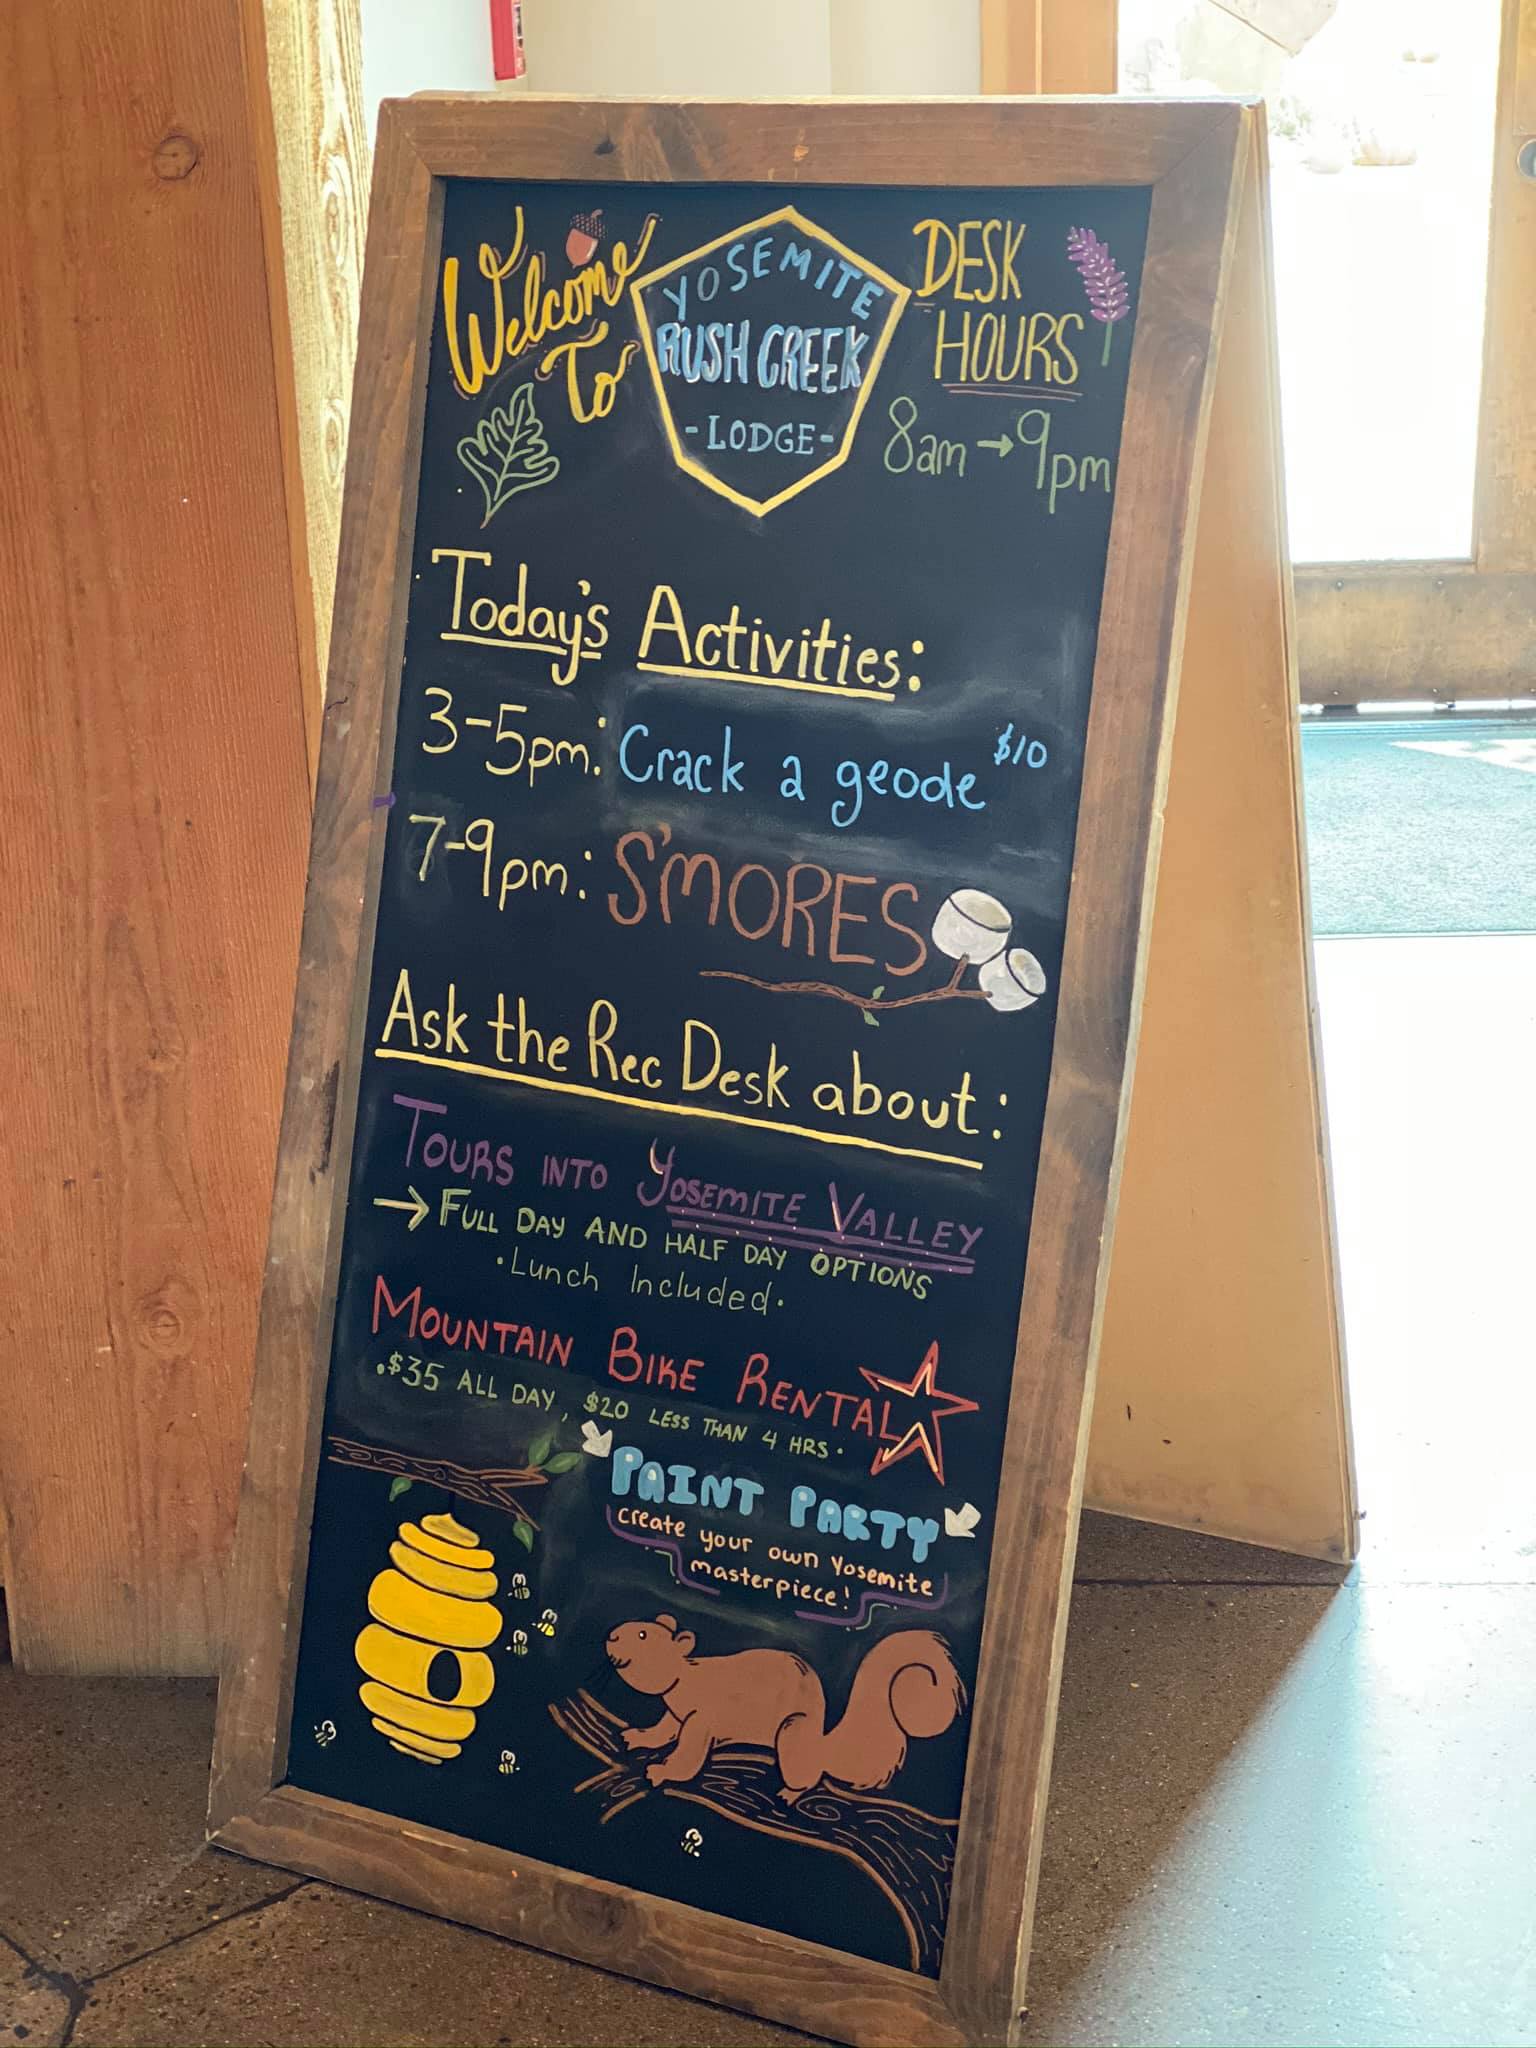 Welcome
To
YOSEMITE
RUSH CREEK
- LODGE -
DESK
HOURS
8am → 9pm
Today's Activities:
3-5pm: Crack a geode $10
7-9pm: S'MORES
Ask the Rec Desk about:
TOURS INTO YOSEMITE VALLEY
→ FULL DAY AND HALF DAY OPTIONS
• Lunch Included •
MOUNTAIN BIKE RENTAL
• $35 ALL DAY, $20 LESS THAN 4 HRS •
PAINT PARTY
create your own Yosemite
masterpiece!